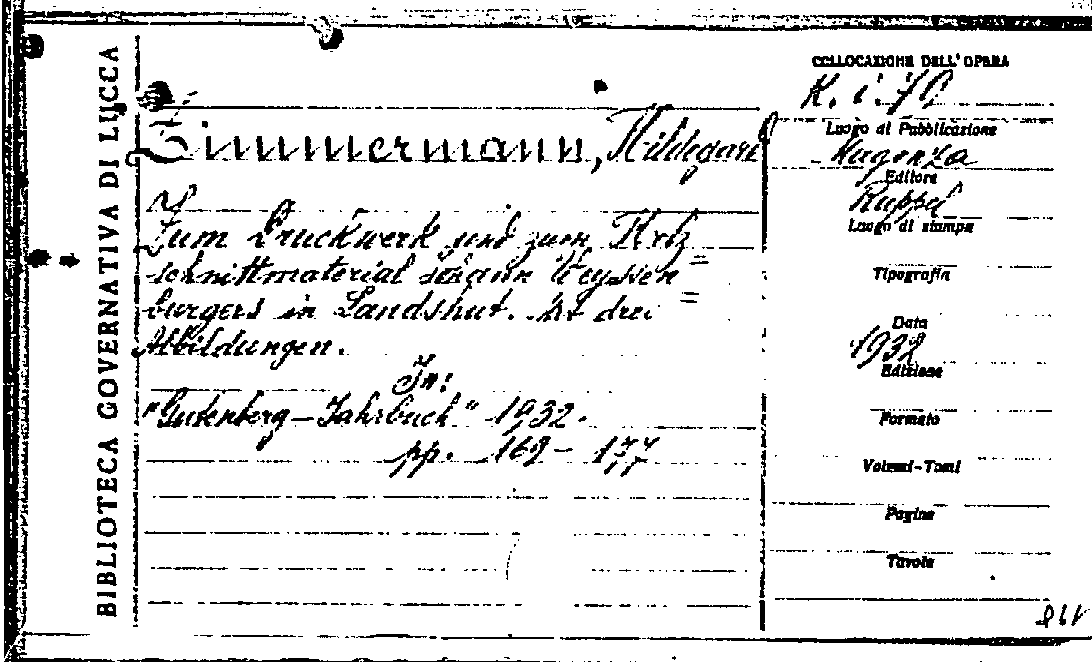 BIBLIOTECA GOVERNATIVA DI LUCCA
Zimmermann, Hildegard
Zum Druckwerk und zum Holz=
schnittmaterial Johann Weyssen=
burgers in Landshut. Mit drei
Abbildungen.
In:
"Gutenberg-Jahrbuch" 1932.
pp. 169-177
COLLOCAZIONE DELL'OPERA
K. i. 70
Luogo di Pubblicazione
Magonza
Editore
Ruppel
Luogo di stampa
Tipografia
Data
1932
Edizione
Formato
Volumi-Tomi
Pagine
Tavole